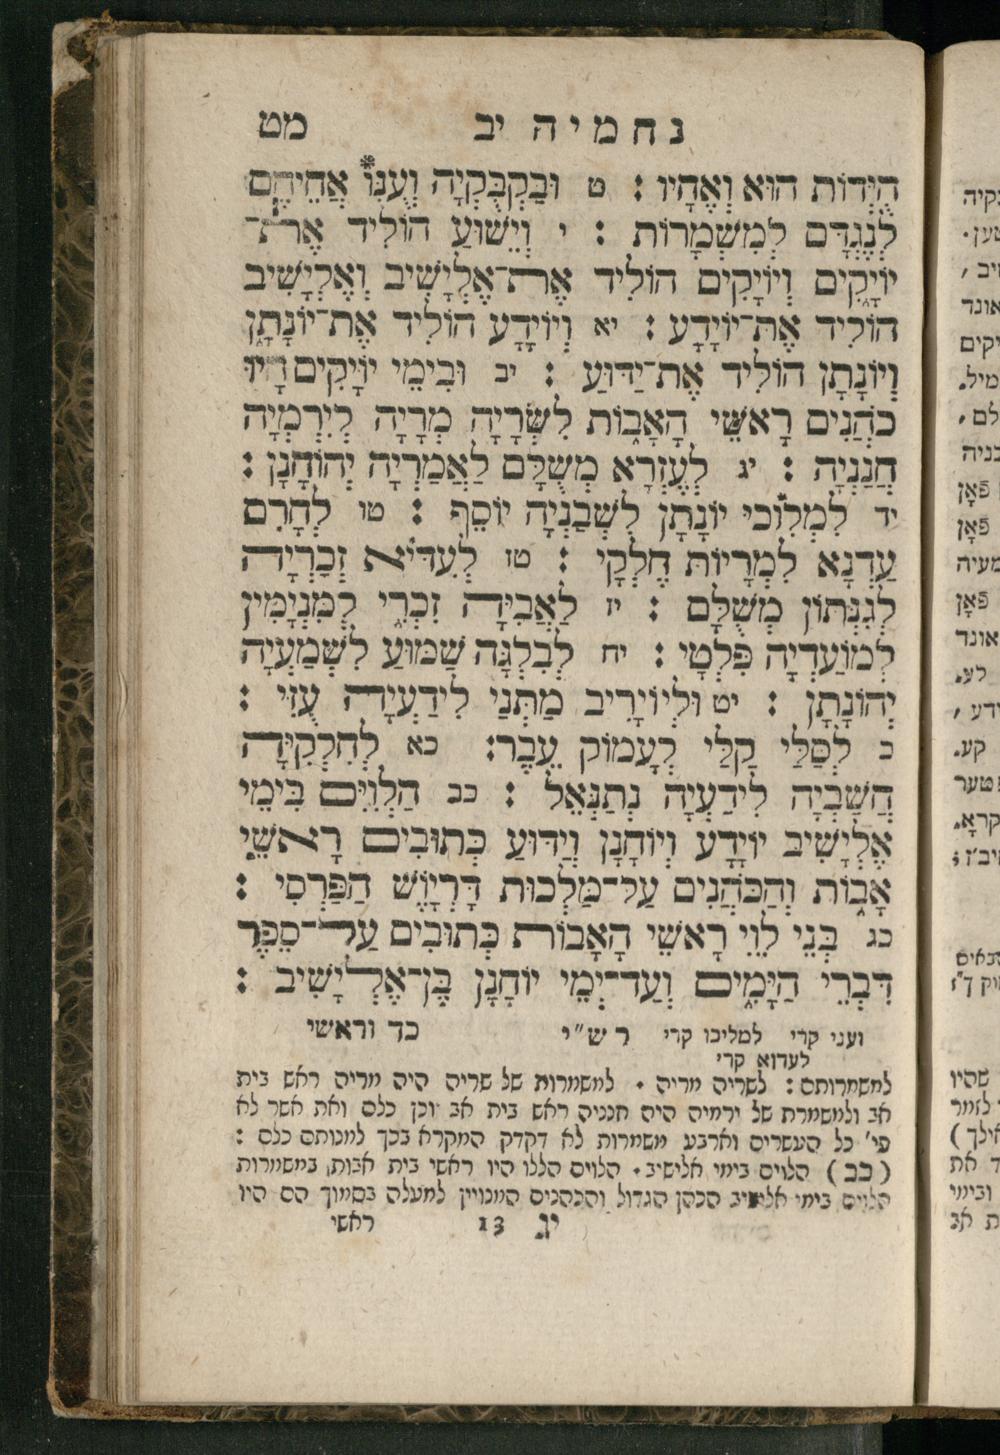 נחמיה יב מט
הֻיְּדוֹת הוּא וְאֶחָיו : ט וּבַקְבֻּקְיָה וְעֻנּוֹ* אֲחֵיהֶם
לְנֶגְדָּם לְמִשְׁמָרוֹת : י וְיֵשׁוּעַ הוֹלִיד אֶת־
יוֹיָקִים וְיוֹיָקִים הוֹלִיד אֶת־אֶלְיָשִׁיב וְאֶלְיָשִׁיב
הוֹלִיד אֶת־יוֹיָדָע : יא וְיוֹיָדָע הוֹלִיד אֶת־יוֹנָתָן
וְיוֹנָתָן הוֹלִיד אֶת־יַדּוּעַ : יב וּבִימֵי יוֹיָקִים הָיוּ
כֹהֲנִים רָאשֵׁי הָאָבוֹת לִשְׂרָיָה מְרָיָה לְיִרְמְיָה
חֲנַנְיָה : יג לְעֶזְרָא מְשֻׁלָּם לַאֲמַרְיָה יְהוֹחָנָן :
יד לִמְלוּכִי יוֹנָתָן לִשְׁבַנְיָה יוֹסֵף : טו לְחָרִם
עַדְנָא לִמְרָיוֹת חֶלְקָי : טז לְעִדּיֹא זְכַרְיָה
לְגִנְּתוֹן מְשֻׁלָּם : יז לַאֲבִיָּה זִכְרִי לְמִנְיָמִין
לְמוֹעַדְיָה פִּלְטָי : יח לְבִלְגָּה שַׁמּוּעַ לִשְׁמַעְיָה
יְהוֹנָתָן : יט וּלְיוֹיָרִיב מַתְּנַי לִידַעְיָה עֻזִּי :
כ לְסַלַּי קַלָּי לְעָמוֹק עֵבֶר: כא לְחִלְקִיָּה
חֲשַׁבְיָה לִידַעְיָה נְתַנְאֵל : כב הַלְוִיִּם בִּימֵי
אֶלְיָשִׁיב יוֹיָדָע וְיוֹחָנָן וְיַדּוּעַ כְּתוּבִים רָאשֵׁי
אָבוֹת וְהַכֹּהֲנִים עַל־מַלְכוּת דָּרְיָוֶשׁ הַפָּרְסִי :
כג בְּנֵי לֵוִי רָאשֵׁי הָאָבוֹת כְּתוּבִים עַל־סֵפֶר
דִּבְרֵי הַיָּמִים וְעַד־יְמֵי יוֹחָנָן בֶּן־אֶלְיָשִׁיב :
ועני קרי למליכו קרי רש״י כד וראשי
לעדוא קרי
למשמרותם : לשריה מריה . למשמרות של שריה היה מריה ראש בית
אב ולמשמרת של ירמיה היה חנניה ראש בית אב וכן כלם ואת אשר לא
פי' כל העשרים וארבע משמרות לא דקדק המקרא בכך למנותם כלם :
(כב) הלוים בימי אלישיב . הלוים הללו היו ראשי בית אבות, במשמרות
הלוים בימי אלישיב הכהן הגדול והכהנים המנויין למעלה בסמוך הם היו
יג 13 ראשי